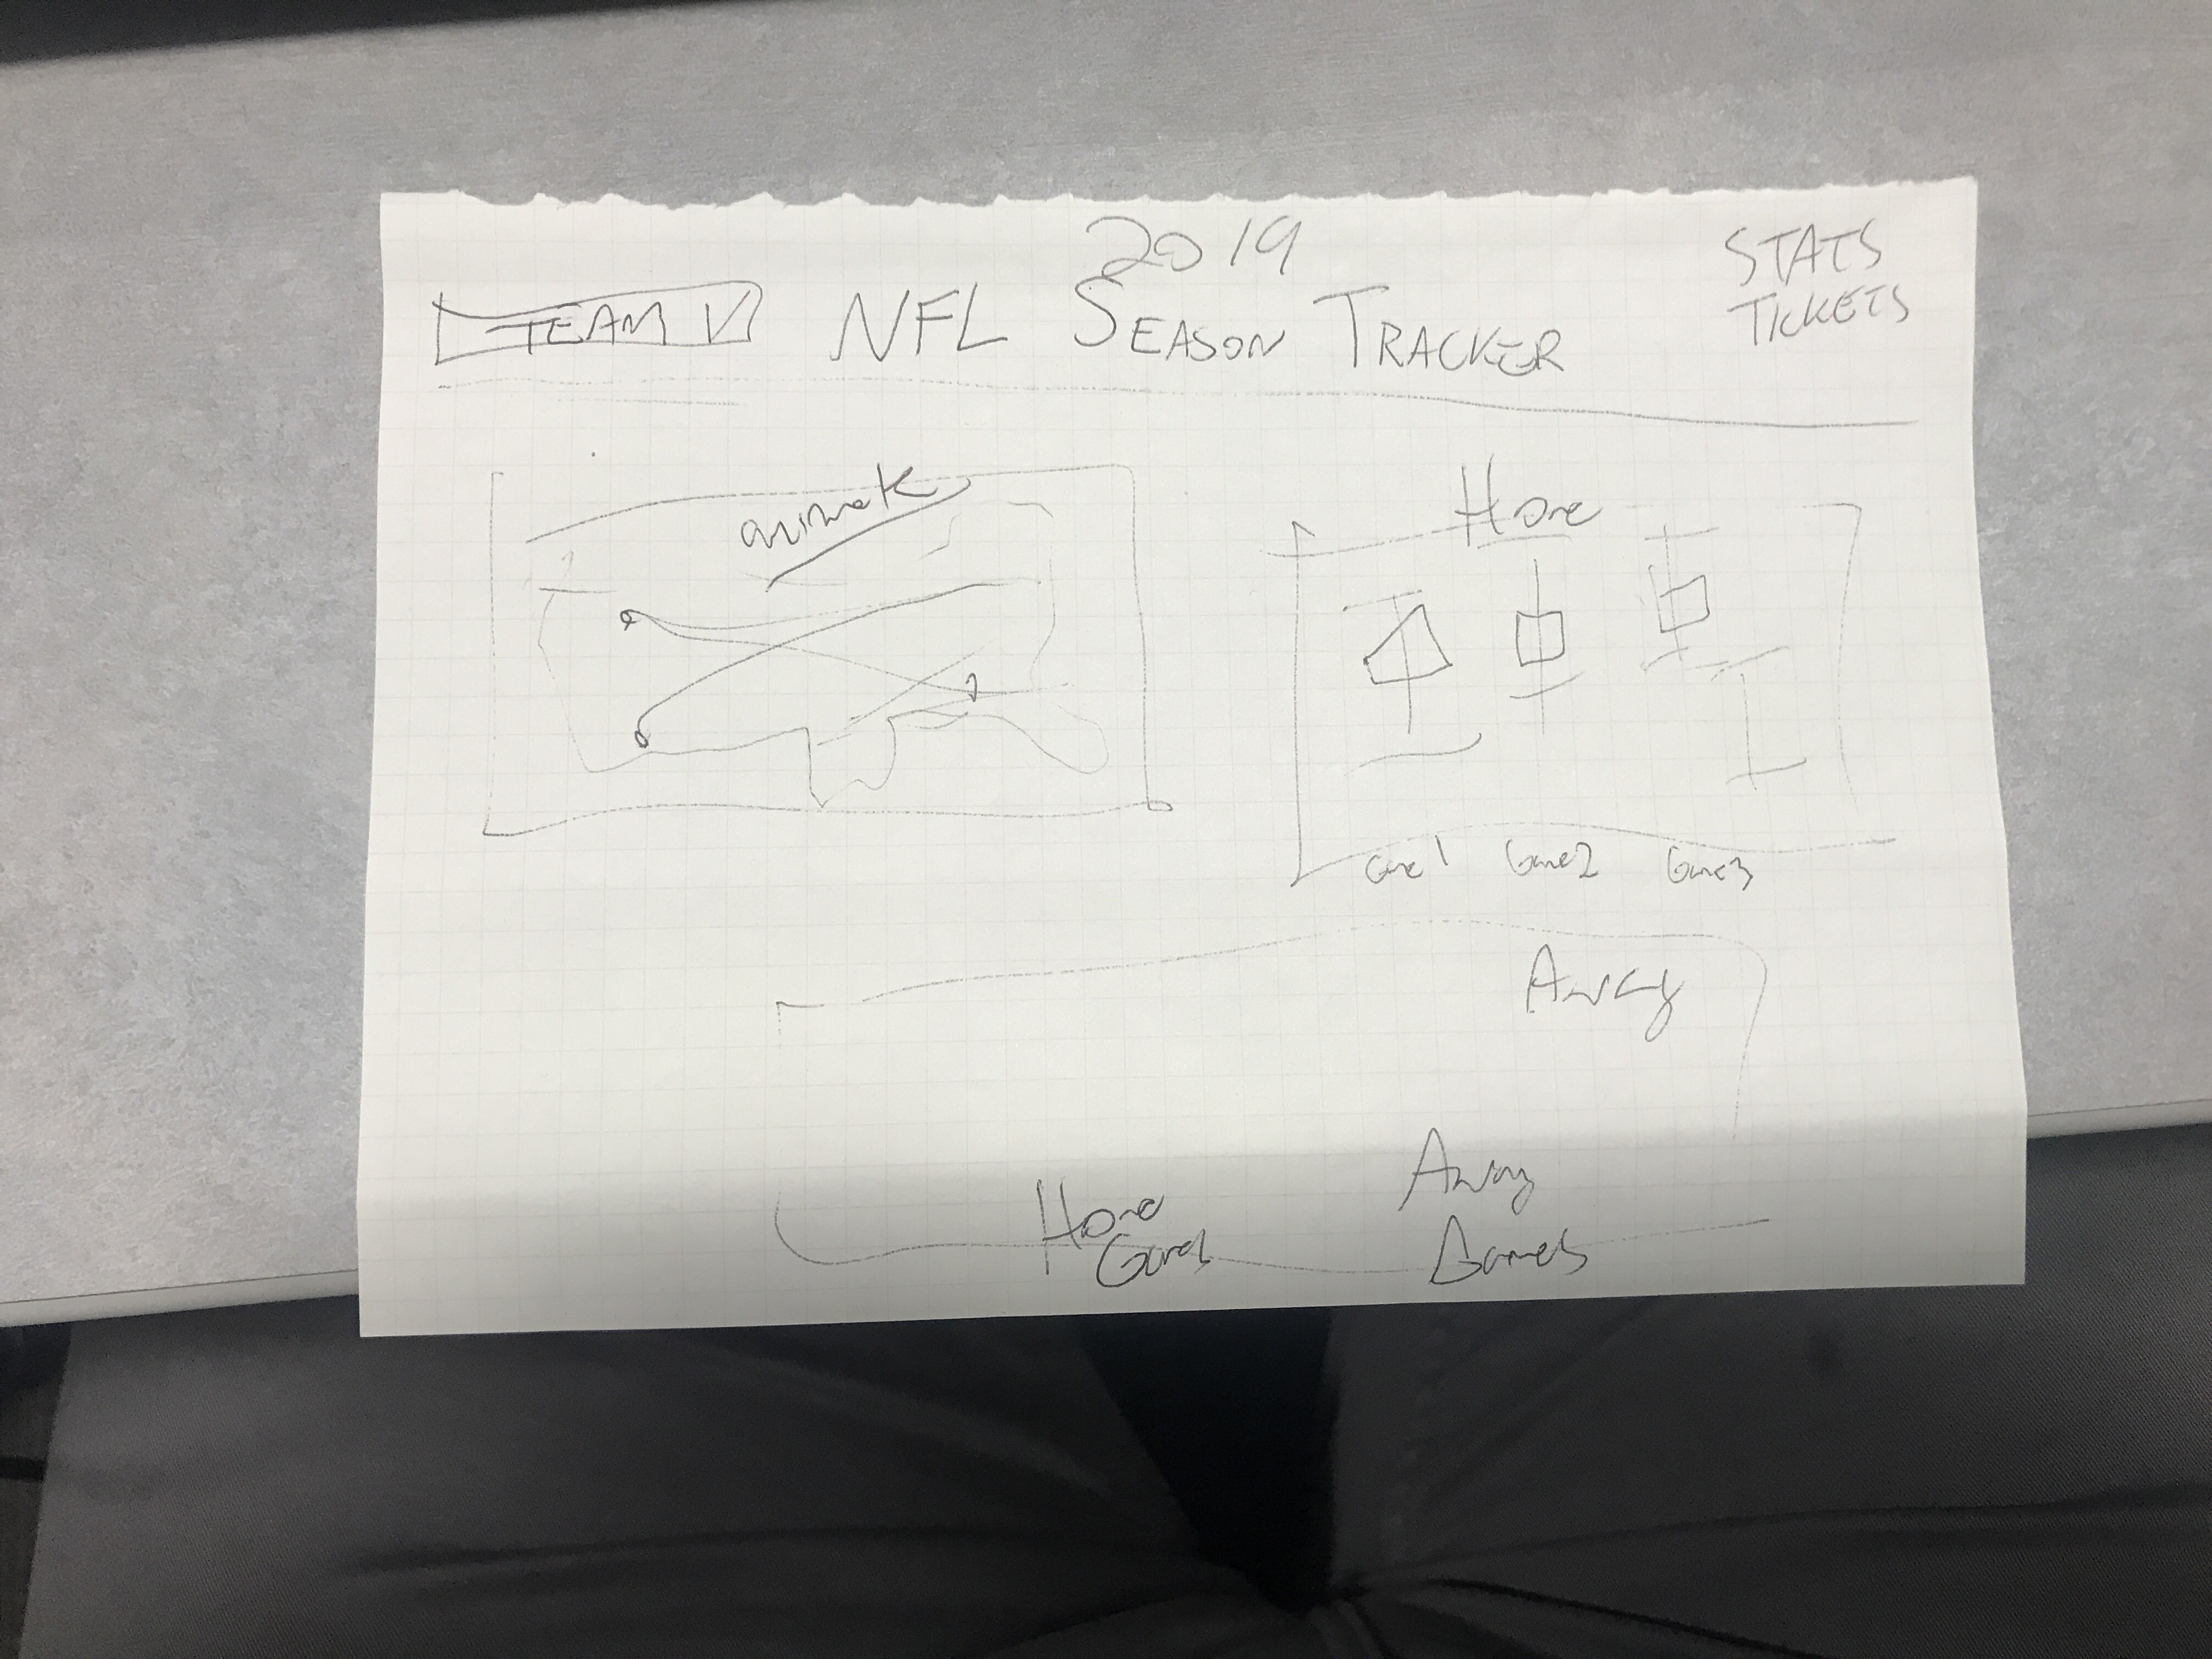 2019
TEAM NFL SEASON TRACKER
STATS
TICKETS
animate
Home
Game 1 Game 2 Game 3
Away
Home
Games
Away
Games